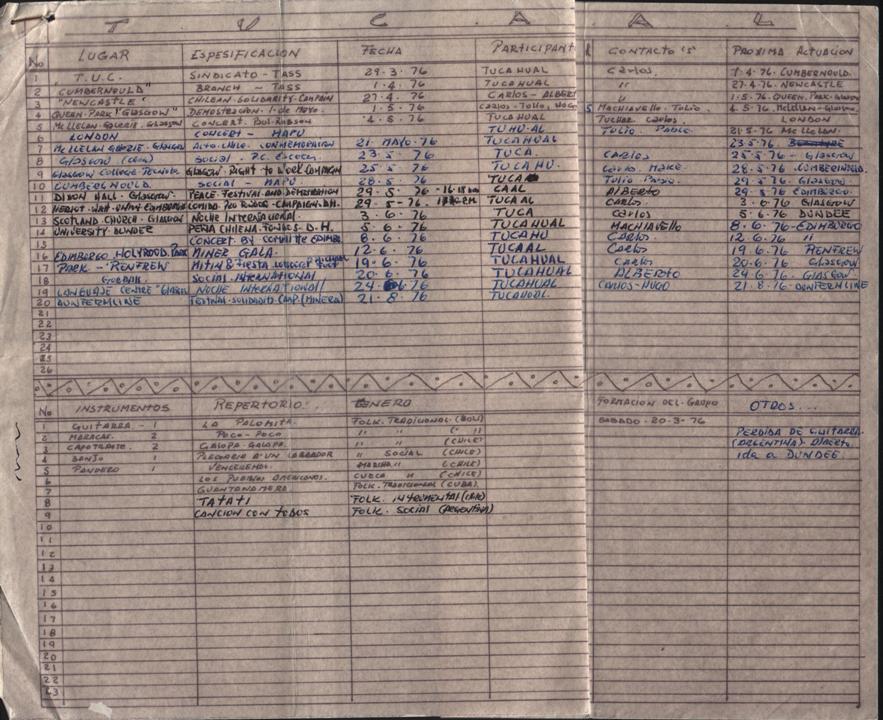 T U C A A L
No LUGAR ESPESIFICACION FECHA PARTICIPANT CONTACTO "S" PROXIMA ACTUACION
1 T.U.C. SINDICATO - TASS 29-3-76 TUCAHUAL Carlos. 1-4-76. CUMBERNOULD.
2 CUMBERNOULD" BRANCH - TASS 1-4-76 TUCAHUAL " 27-4-76. NEWCASTLE
3 "NEWCASTLE" CHILEAN-SOLIDARITY-CAMPAIN 27-4-76 CARLOS-ALBERT " 1-5-76. QUEEN. PARK-Glasgow
4 QUEEN-PARK "GLASGOW" DEMOSTRACION. 1-de Mayo. 1-5-76 CARLOS-TULIO, HUGO MACHIAVELLO-TULIO 4-5-76. McLellan-Glasgow
5 McLELLAN-GALERIE-GLASGOW CONCERT. 4-5-76 TUCAHUAL TUCHAR Carlos. LONDON
6 LONDON CONCERT - MAPU TUHU-AL TULIO. PABLO. 21-5-76 McLELLAN.
7 McLELLAN GALERIE-GLASGOW ACTO.CHILE. CONMEMORACION 21 MAYO-76 TUCAHUAL 23-5-76
8 GLASGOW SOCIAL. P.C. ESCOCES. 23-5-76 TUCA. CARLOS 25-5-76 - GLASGOW
9 GLASGOW COLLEGE-TECNOLO GLASGOW-RIGHT to WORK CAMPAIGN 25-5-76 TUCAHU. Carlos. 28-5-76. CUMBERNOULD.
10 CUMBERNOULD. SOCIAL - MAPU 28-5-76 TUCA Tulio. 29.5.76 GLASGOW
11 DIXON HALL - GLASGOW. PEACE-FESTIVAL-AND-DEMOSTRATION 29.5-76 CAAL ALBERTO 29.5.76 EDIMBURGO.
12 HERIOT-WATT-UNITY EDIMBURGO COMIDA PRO FONDOS-CAMPAIGN.D.H. 29-5-76. TUCAAL CARLOS. 3-6-76 GLASGOW
13 SCOTLAND CHURCH-GLASGOW NOCHE INTERNACIONAL 3-6-76 TUCA Carlos 5-6-76 DUNDEE
14 UNIVERSITY DUNDEE PEÑA CHILENA-FONDOS-D.H. 5-6-76 TUCAHUAL MACHIAVELLO 8-6-76-EDIMBURGO
15 CONCERT. BY COMMITTE EDIMBU. 8-6-76 TUCAHUAL Carlos 12.6.76 "
16 EDIMBURGO. HOLYROOD. PARK MINER GALA. 12-6-76 TUCAAL Carlos 19.6.76 RENFREW
17 PARK - RENFREW MITIN & FIESTA 19-6-76 TUCAHUAL Carlos 20.6.76 GLASGOW
18 GORBALS SOCIAL INTERNATIONAL 20-6-76 TUCAHUAL ALBERTO 24.6.76- GLASGOW
19 LANGUAGE CENTRE "GLASGOW NOCHE INTERNATIONAL 24-6-76 TUCAHUAL CARLOS-HUGO 21.8.76-DUNFERMLINE
20 DUNFERMLINE FESTIVAL-SOLIDARITY CAMP (MINERA) 21-8-76 TUCAHUAL.
21
22
23
24
25
26
No INSTRUMENTOS REPERTORIO GENERO FORMACION DEL-GRUPO OTROS...
1 GUITARRA - 1 LA PALOMITA. FOLK. TRADICIONAL. (BOLI) SABADO - 20-3-76
2 MARACAS. 2 POCO-POCO " " (" ") PERDIDA DE GUITARRA.
3 2 GALOPA GALOPA. " " (CHILE) (ARGENTINA). Alberto.
4 BANJO 1 PLEGARIA A'UN LABRADOR " SOCIAL (CHILE) ida a DUNDEE
5 PANDERO 1 VENCEREMOS. MARCHA " (CHILE)
6 LOS PUEBLOS AMERICANOS. CUECA " (CHILE)
7 GUANTANAMERA FOLK. TRADICIONAL (CUBA)
8 TATATI FOLK. INSTRUMENTAL (Chile)
9 CANCION CON TODOS FOLK. SOCIAL (ARGENTINA)
10
11
12
13
14
15
16
17
18
19
20
21
22
23